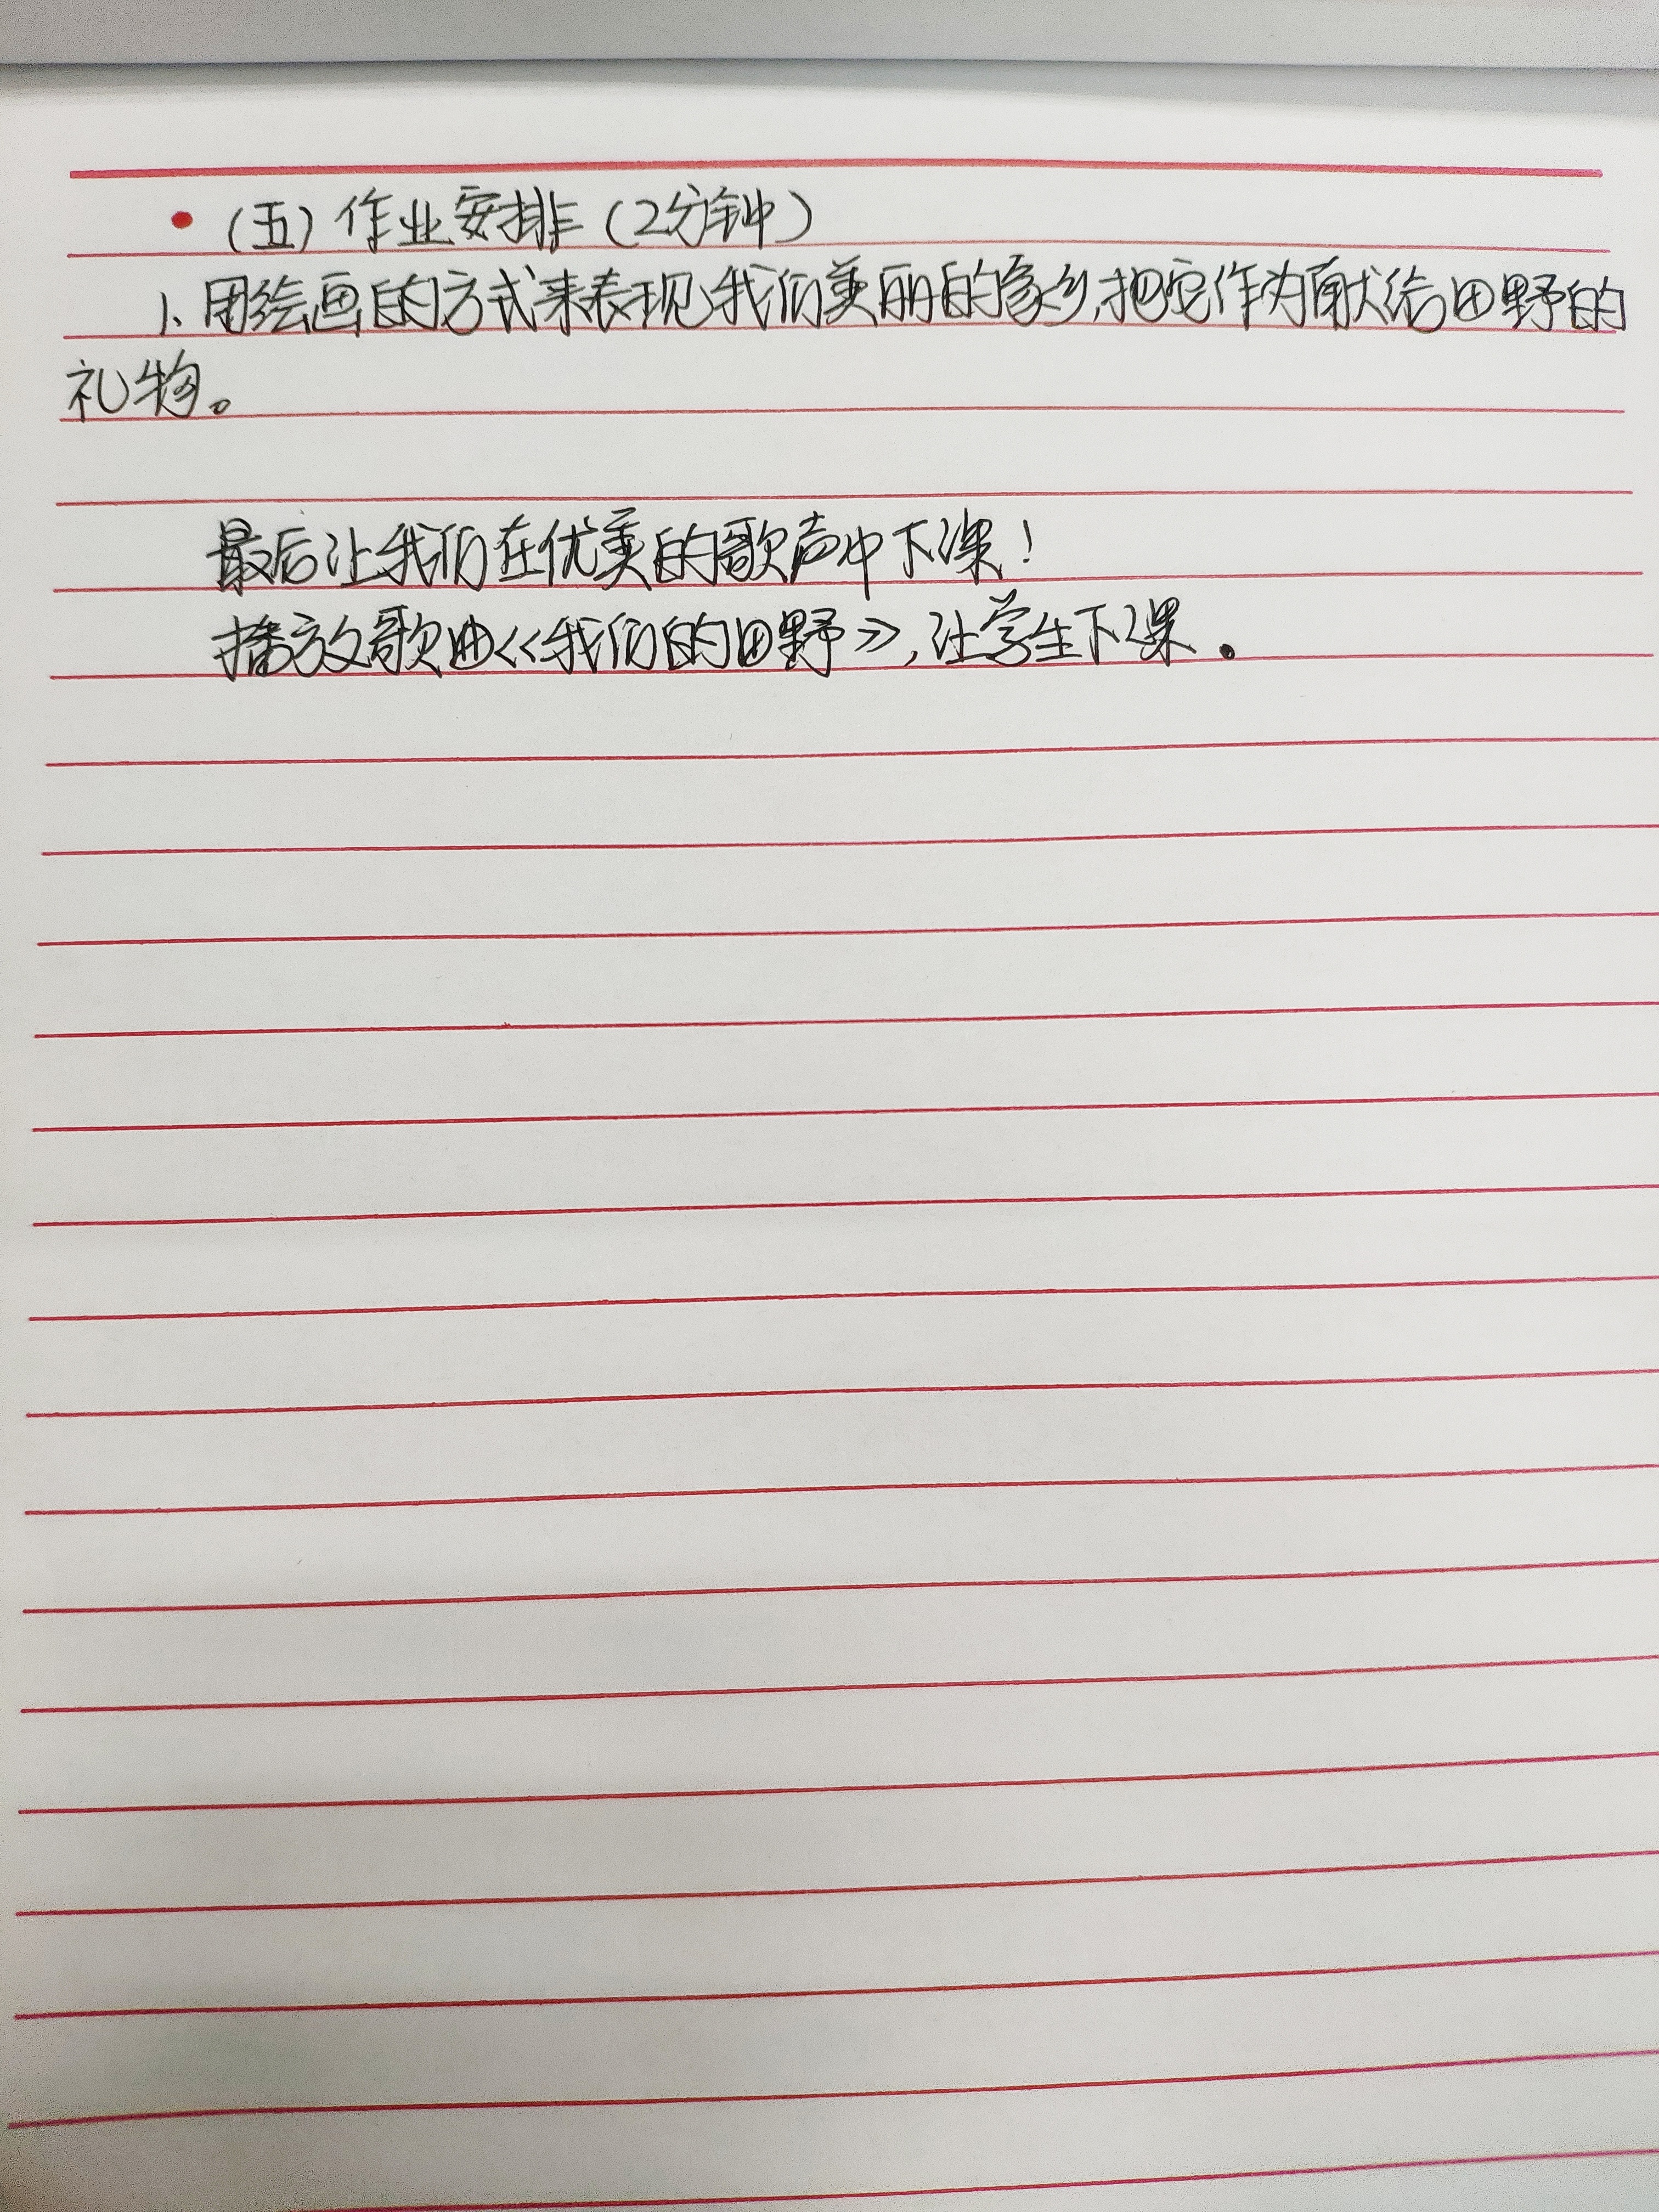 (五)作业安排(2分钟)
1、用绘画的方式来表现我们美丽的家乡,把它作为献给田野的
礼物。
最后让我们在优美的歌声中下课!
播放歌曲《我们的田野》,让学生下课.